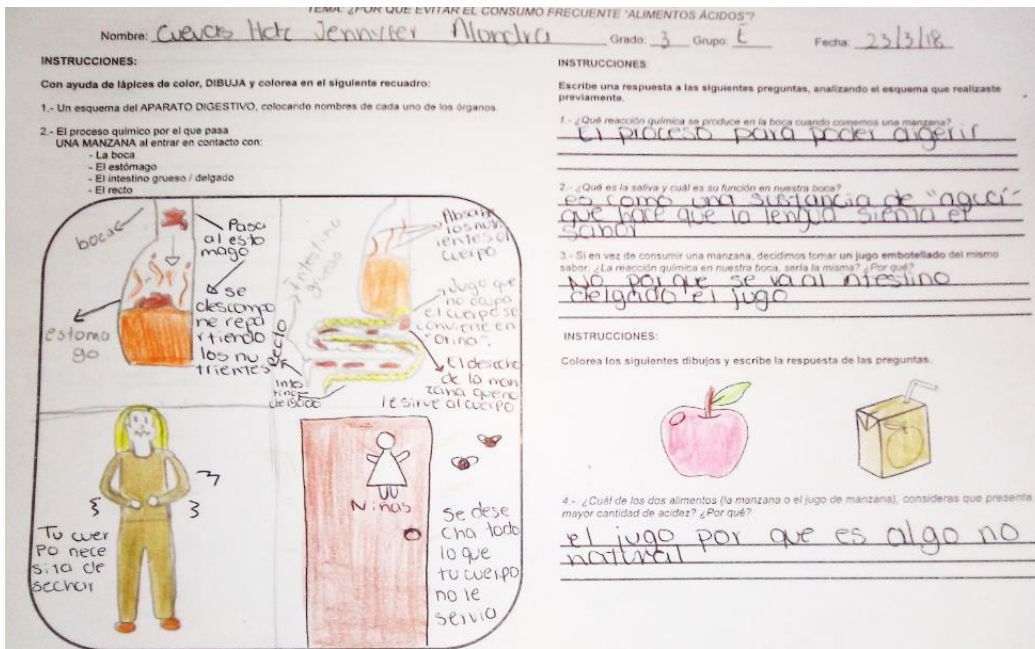 TEMA: ¿POR QUÉ EVITAR EL CONSUMO FRECUENTE "ALIMENTOS ÁCIDOS"?
Nombre: Cuevas Jennyfer Alondra Grado: 3 Grupo: E Fecha: 23/3/18
INSTRUCCIONES:
Con ayuda de lápices de color, DIBUJA y colorea en el siguiente recuadro:
1.- Un esquema del APARATO DIGESTIVO, colocando nombres de cada uno de los órganos.
2.- El proceso químico por el que pasa
UNA MANZANA al entrar en contacto con:
- La boca
- El estómago
- El intestino grueso / delgado
- El recto
boca
Pasa
al esto
mago
se
descompo
ne repa
rtiendo
los nu
trientes
estoma
go
intestino
grueso
recto
intes
tino
delgado
los nutr
ientes al
cuerpo
Jugo que
no ocupa
el cuerpo se
convierte en
"orina".
El desecho
de la man
zana que no
le sirve al cuerpo
Tu cuer
po nece
sita de
sechar
Niñas
Se dese
cha todo
lo que
tu cuerpo
no le
servio
INSTRUCCIONES
Escribe una respuesta a las siguientes preguntas, analizando el esquema que realizaste
previamente.
1.- ¿Qué reacción química se produce en la boca cuando comemos una manzana?
El proceso para poder digerir
2.- ¿Qué es la saliva y cuál es su función en nuestra boca?
es como una sustancia de
que hace que la lengua sienta el
sabor
3.- Si en vez de consumir una manzana, decidimos tomar un jugo embotellado del mismo
sabor, ¿La reacción química en nuestra boca, sería la misma? ¿Por qué?
No por que se va al intestino
delgado el jugo
INSTRUCCIONES:
Colorea los siguientes dibujos y escribe la respuesta de las preguntas.
4.- ¿Cuál de los dos alimentos (la manzana o el jugo de manzana), consideras que presenta
mayor cantidad de acidez? ¿Por qué?
el jugo por que es algo no
natural